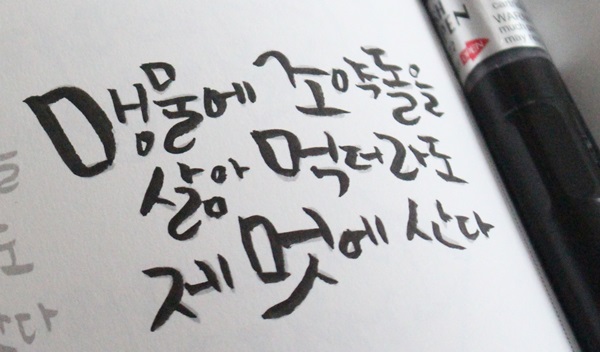 맹물에 조약돌을
삶아 먹더라도
제 멋에 산다
PEN
OPEN